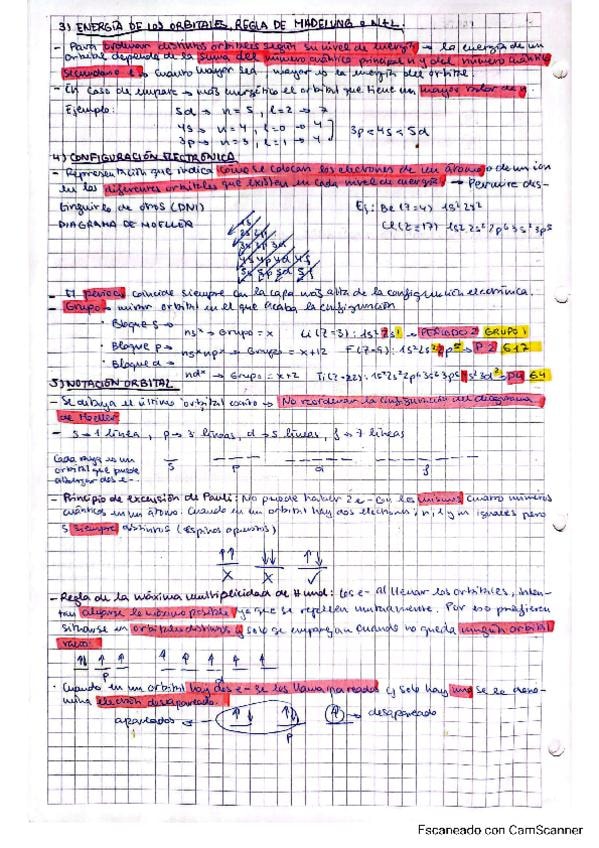 3) ENERGÍA DE LOS ORBITALES. REGLA DE MADELUNG o N+L.
- Para ordenar distintos orbitales según su nivel de energía → la energía de un
orbital depende de la suma del número cuántico principal n y del número cuántico
secundario l → cuanto mayor sea, mayor es la energía del orbital.
- En caso de empate → más energético el orbital que tiene un mayor valor de n.
Ejemplo: 5d → n = 5, l = 2 → 7
4s → n = 4, l = 0 → 4
3p → n = 3, l = 1 → 4
3p < 4s < 5d
4) CONFIGURACIÓN ELECTRÓNICA
- Representación que indica como se colocan los electrones de un átomo o de un ion
en los diferentes orbitales que existen en cada nivel de energía. → Permite dis-
tinguirlo de otros (DNI) Ej: Be (Z=4) 1s² 2s²
DIAGRAMA DE MOELLER Cl (Z=17) 1s² 2s² 2p⁶ 3s² 3p⁵
1s
2s 2p
3s 3p 3d
4s 4p 4d 4f
5s 5p 5d 5f
- El período coincide siempre con la capa más alta de la configuración electrónica.
- Grupo → mirar orbital en el que acaba la configuración
· Bloque s → ns^x → Grupo = x Li (Z=3): 1s² 2s¹ → PERÍODO 2 GRUPO 1
· Bloque p → ns^x np^x → Grupo = x+12 F (Z=9): 1s² 2s² 2p⁵ → P 2 G17
· Bloque d → nd^x → Grupo = x+2 Ti (Z=22): 1s² 2s² 2p⁶ 3s² 3p⁶ 4s² 3d² → P4 G4
5) NOTACIÓN ORBITAL
- Se dibuja el último orbital → No reordenan la configuración del diagrama
de Moeller
- s → 1 línea, p → 3 líneas, d → 5 líneas, f → 7 líneas
Cada raya es un
orbital que puede
albergar dos e-.
s p d f
- Principio de exclusión de Pauli: No puede haber 2 e- con los mismos cuatro números
cuánticos en un átomo. Cuando en un orbital hay dos electrones, n, l y m iguales pero
s siempre distintos (espines opuestos)
↑↑ ↓↓ ↑↓
X X ✓
- Regla de la máxima multiplicidad de Hund: Los e- al llenar los orbitales, inten-
tan alejarse lo máximo posible ya que se repelen mutuamente. Por eso prefieren
situarse en orbitales distintos y solo se emparejan cuando no queda ningún orbital
vacío.
p d
· Cuando en un orbital hay dos e- se los llama apareados y solo hay uno se le deno-
mina electrón desapareado.
apareados ← → desapareado
p
Escaneado con CamScanner